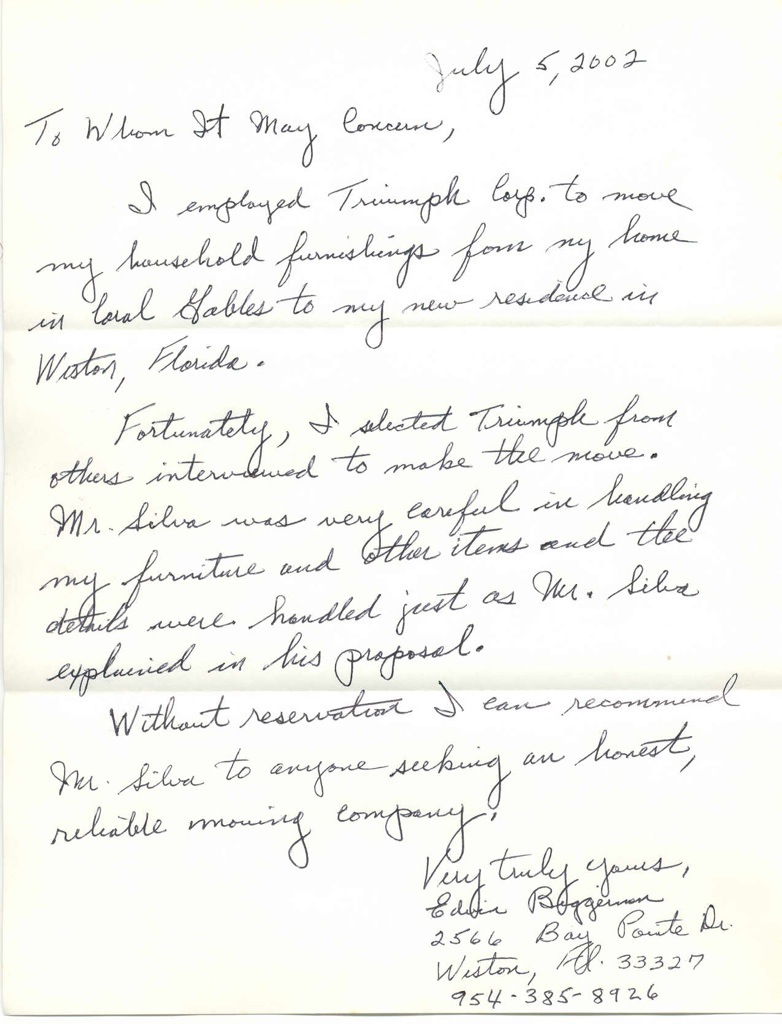 July 5, 2002
To Whom It May Concern,
I employed Triumph Corp. to move
my household furnishings fom my home
in Coral Gables to my new residence in
Weston, Florida.
Fortunately, I selected Triumph from
others interviewed to make the move.
Mr. Silva was very careful in handling
my furniture and other items and the
details were handled just as Mr. Silva
explained in his proposal.
Without reservation I can recommend
Mr. Silva to anyone seeking an honest,
reliable moving company.
Very truly yours,
Edwin Boggeman
2566 Bay Pointe Dr.
Weston, Fl. 33327
954-385-8926